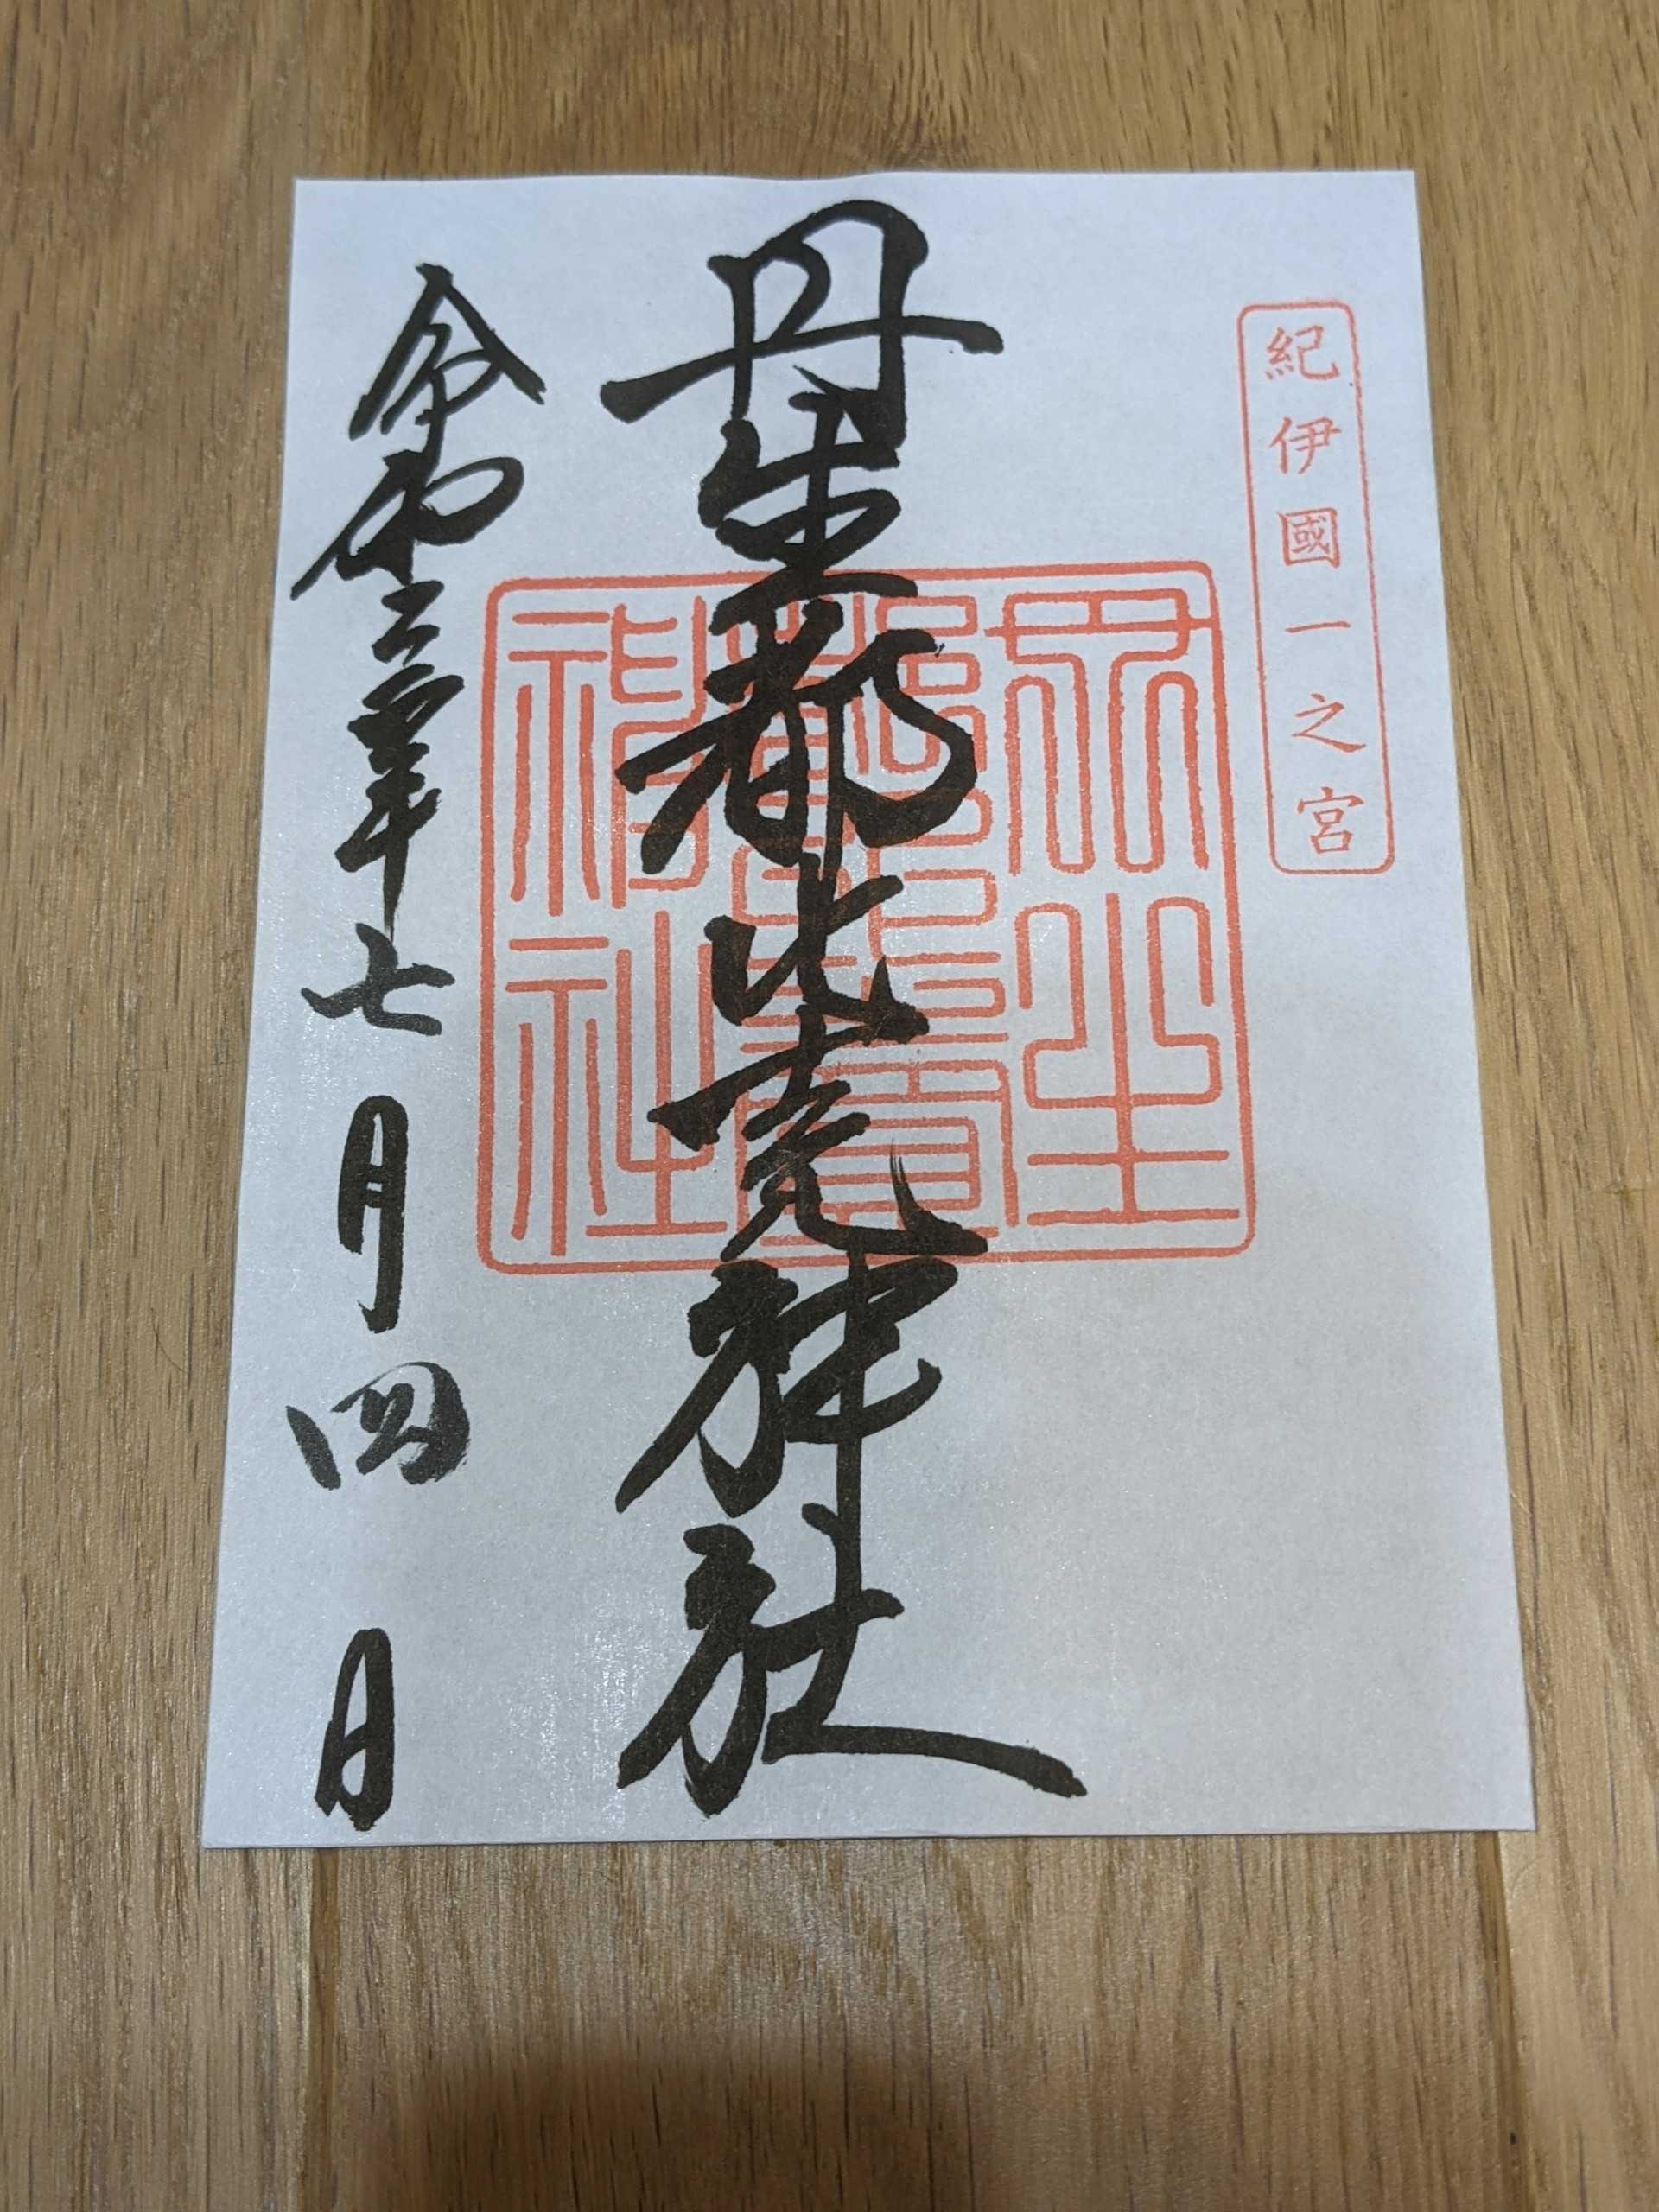 紀伊國一之宮
丹生都比売神社
丹生
都比賣
神社
令和年七月四日